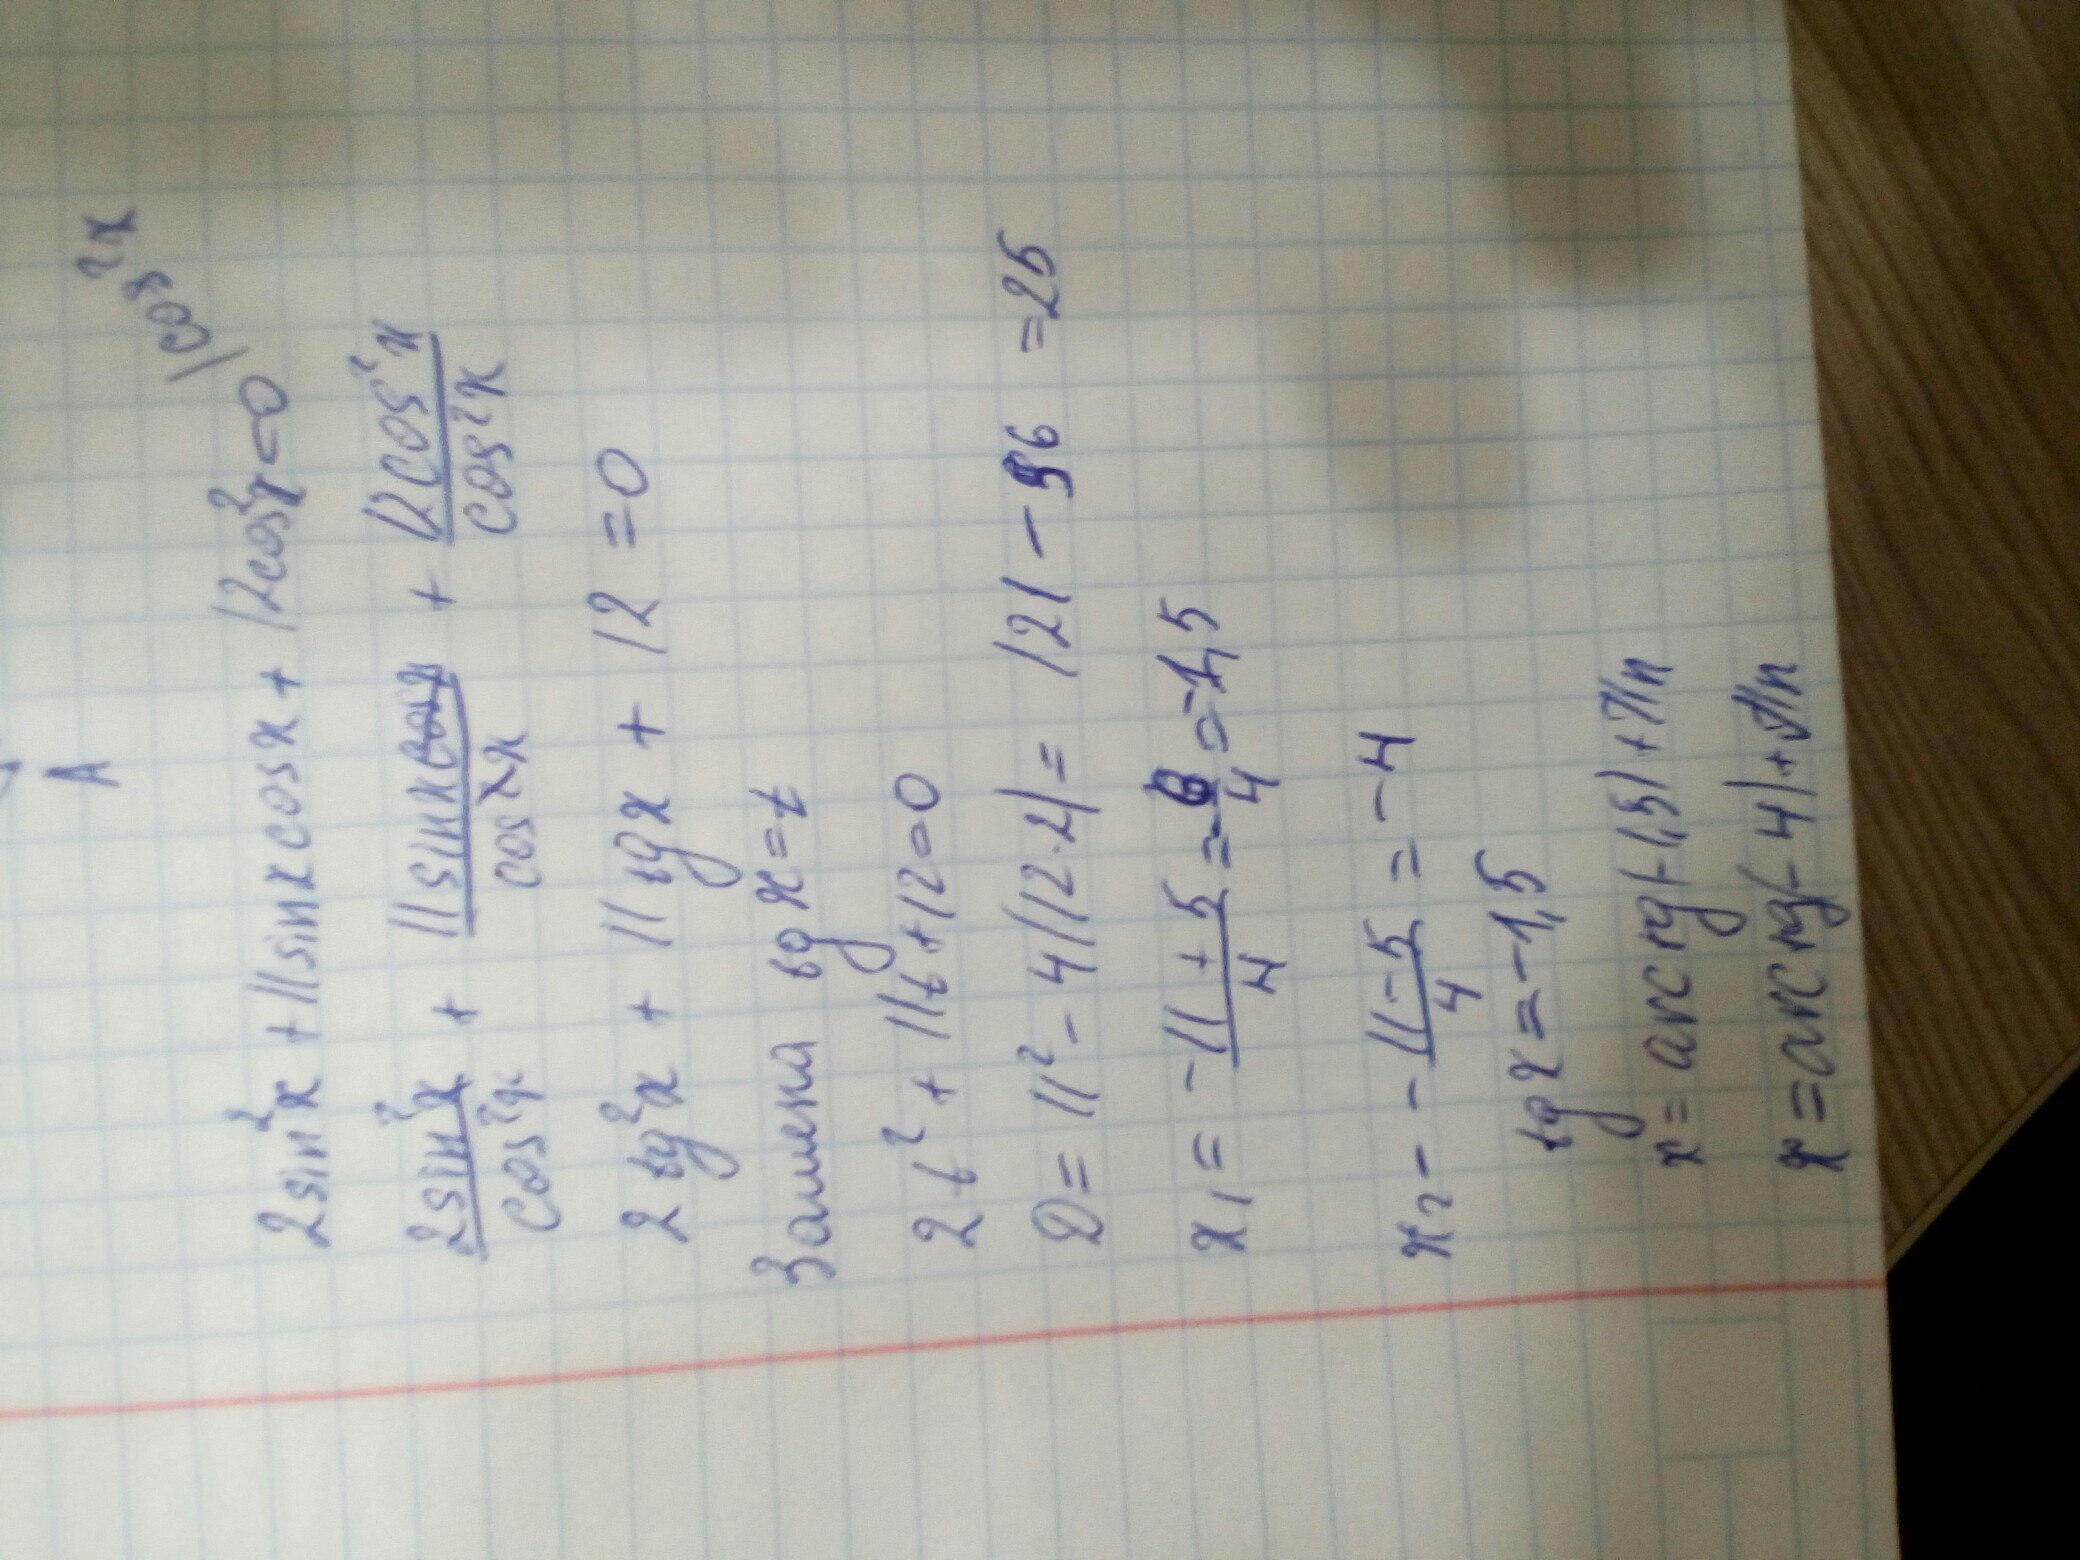 A
|cos²x
2sin²x + 11sinxcosx + 12cos²x=0
2sin²x/cos²x + 11sinxcosx/cos²x + 12cos²x/cos²x
2tg²x + 11tgx + 12 = 0
Замена tgx = t
2t² + 11t + 12 = 0
D = 11² - 4(12·2) = 121 - 96 = 25
x₁ = -11 + 5/4 = -6/4 = -1,5
x₂ - -11 - 5/4 = -4
tgx = -1,5
x = arctg(-1,5) + πn
x = arctg(-4) + πn